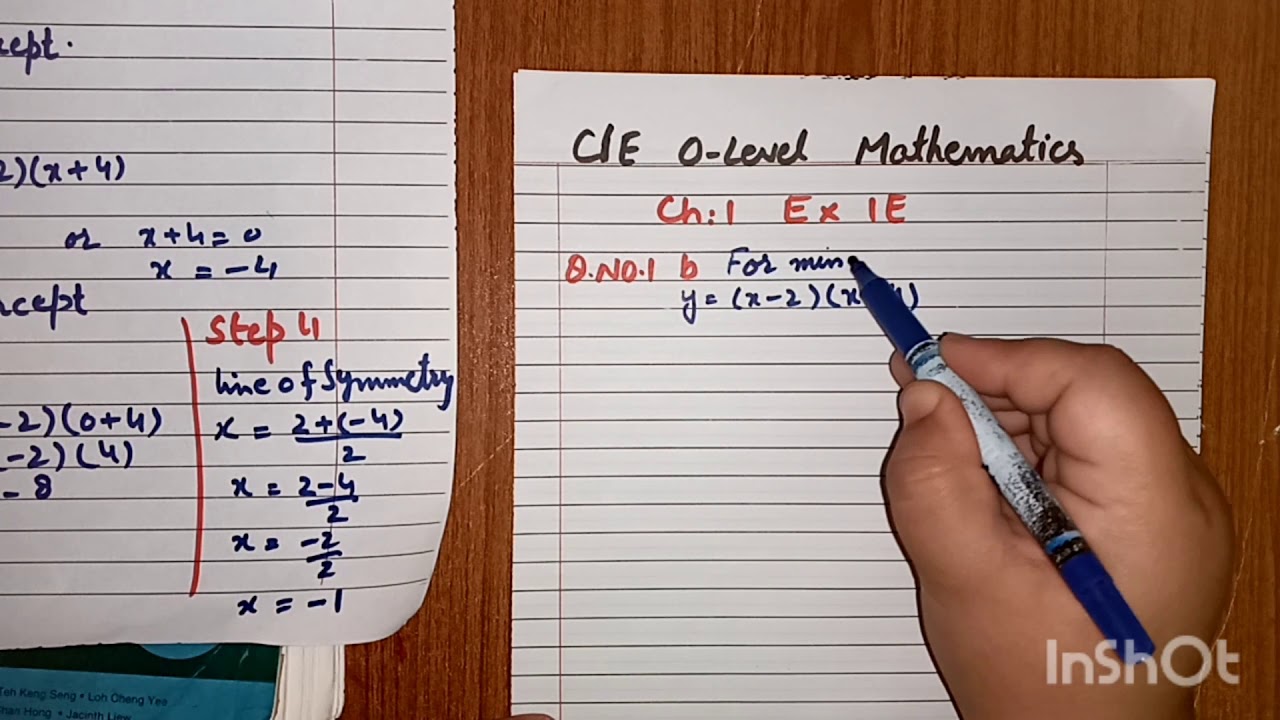 cept.
2)(x+4)
or x+4=0
x = -4
ncept
Step 4
Line of Symmetry
-2)(0+4)
x = 2+(-4)
2
-2)(4)
- 8
x = 2-4
2
x = -2
2
x = -1
Teh Keng Seng • Loh Cheng Yee
Chan Hong • Jacinth Liew
CIE O-Level Mathematics
Ch:1 Ex 1E
Q.NO.1 b For min
y = (x-2)(x
InShOt